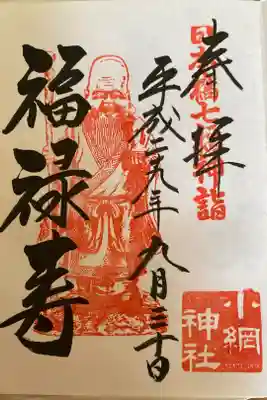 奉拝
日本橋七福神詣
平成二九年九月三十日
福禄寿
小網
神社